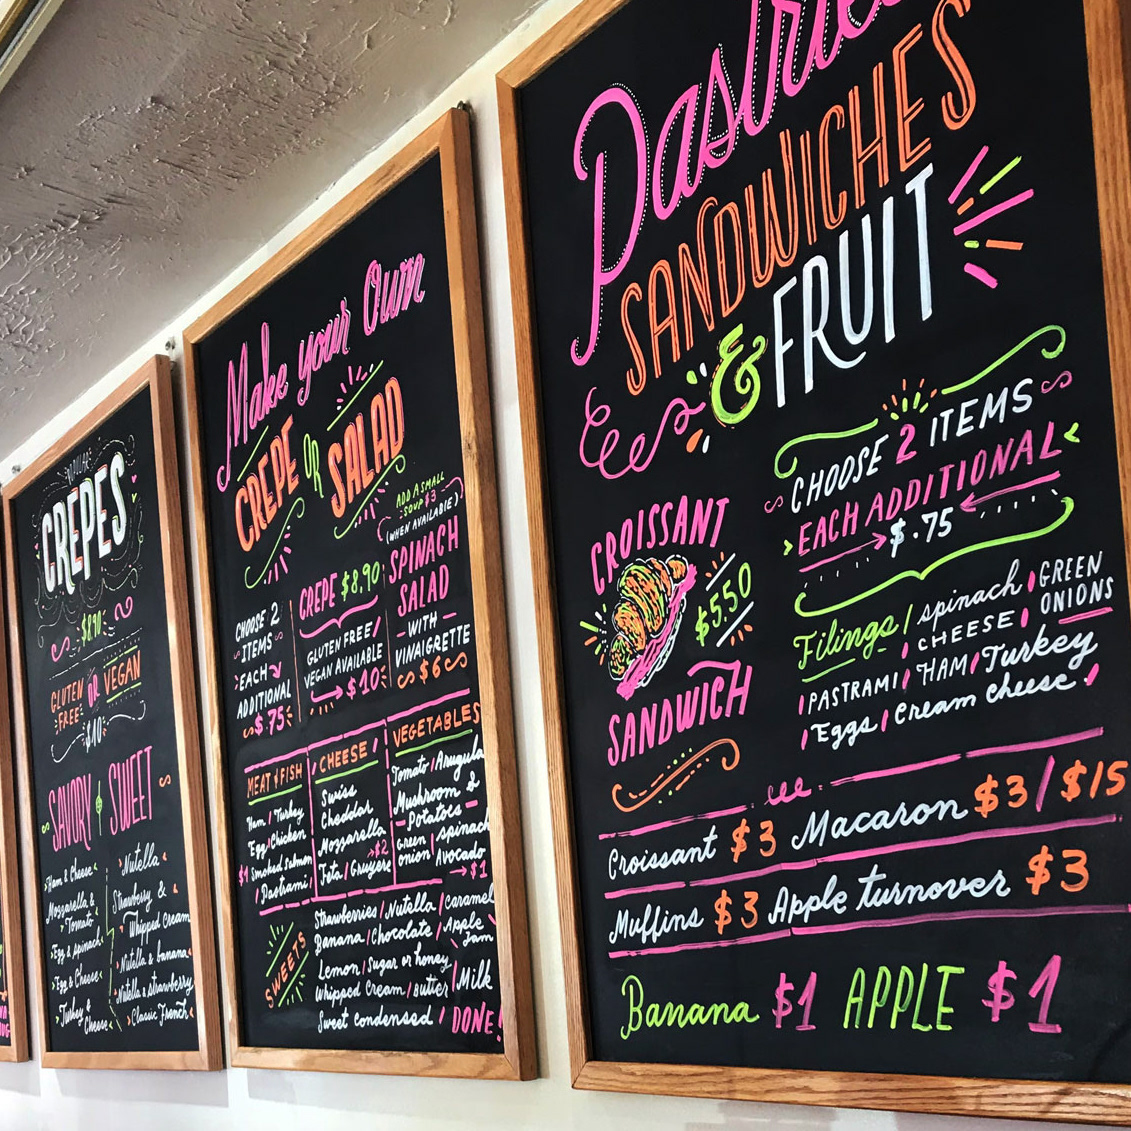 POPULAR
CREPES
$8.90
GLUTEN FREE OR VEGAN
$10
SAVORY & SWEET
Ham & Cheese
Mozzarella & Tomato
Egg & spinach
Egg & Cheese
Turkey & Cheese
Nutella
Strawberry & Whipped Cream
Nutella & banana
Nutella & strawberry
Classic French
Make your Own
CREPE OR SALAD
CHOOSE 2
ITEMS
EACH
ADDITIONAL
$.75
CREPE $8.90
GLUTEN FREE/
VEGAN AVAILABLE
$10
ADD A SMALL
SOUP $3
(WHEN AVAILABLE)
SPINACH
SALAD
- WITH -
VINAIGRETTE
$6
MEAT & FISH
Ham / Turkey
Egg / Chicken
$1 Smoked salmon
/ Pastrami /
CHEESE /
Swiss
Cheddar
Mozzarella
$2
Feta / Gruyere
VEGETABLES
Tomato / Arugula
Mushroom
Potatoes
Green onion / spinach
Avocado
$1
SWEETS
Strawberries / Nutella / caramel
Banana / Chocolate / Apple Jam
Lemon / Sugar or honey
Whipped Cream / Butter / Milk
Sweet condensed / DONE!
Pastries
SANDWICHES
& FRUIT
CROISSANT
$5.50
SANDWICH
CHOOSE 2 ITEMS
EACH ADDITIONAL
$.75
Filings / spinach / GREEN ONIONS
CHEESE
/ PASTRAMI / HAM / Turkey
/ Eggs / cream cheese /
Croissant $3 Macaron $3 / $15
Muffins $3 Apple turnover $3
Banana $1 APPLE $1